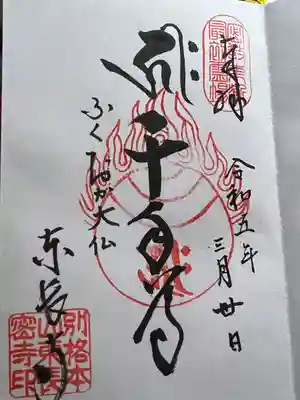 奉拝
令和五年
三月廿日
千手
ふくおか大仏
東長寺
別格本
山東長
密寺印